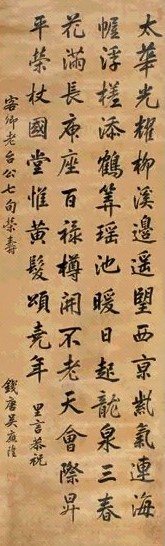 太華光耀柳溪邊遥望西京紫氣連海
幄浮槎添鶴筭瑶池暖日起龍泉三春
花滿長庚座百禄樽開不老天會際昇
平榮杖國堂惟黃髮頌堯年 里言恭祝
客卿老台公七旬榮壽
錢唐吳